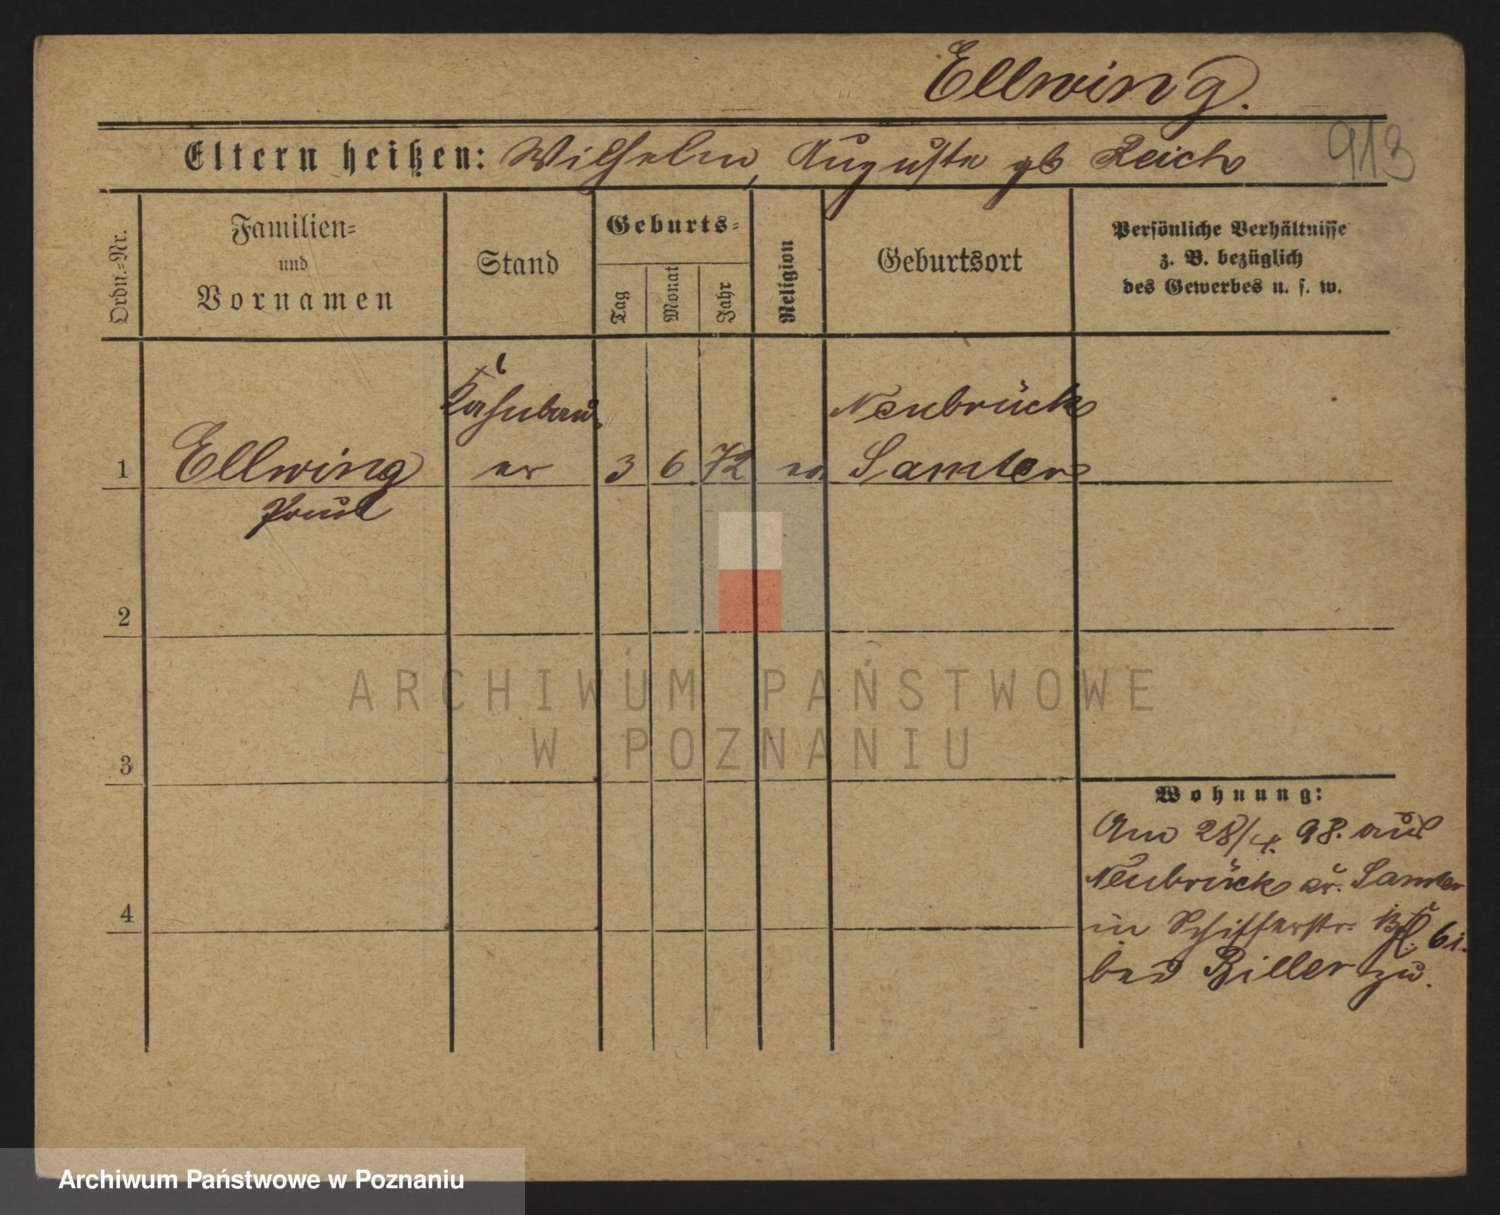 Ellwing.
Eltern heißen: Wilhelm, Auguste gb Reich
913
Ordn.=Nr.
Familien=
und
Vornamen
Stand
Geburts=
Tag
Monat
Jahr
Religion
Geburtsort
Persönliche Verhältnisse
z. B. bezüglich
des Gewerbes u. s. w.
Kahnbau-
Neubrück
1 Ellwing er 3 6 72 ev Samter
Paul
2
3
4
Wohnung:
Am 28/4. 98. aus
Neubrück Kr. Samter
in Schifferstr. 6 i.
bei Biller zu.
ARCHIWUM PAŃSTWOWE
W POZNANIU
Archiwum Państwowe w Poznaniu